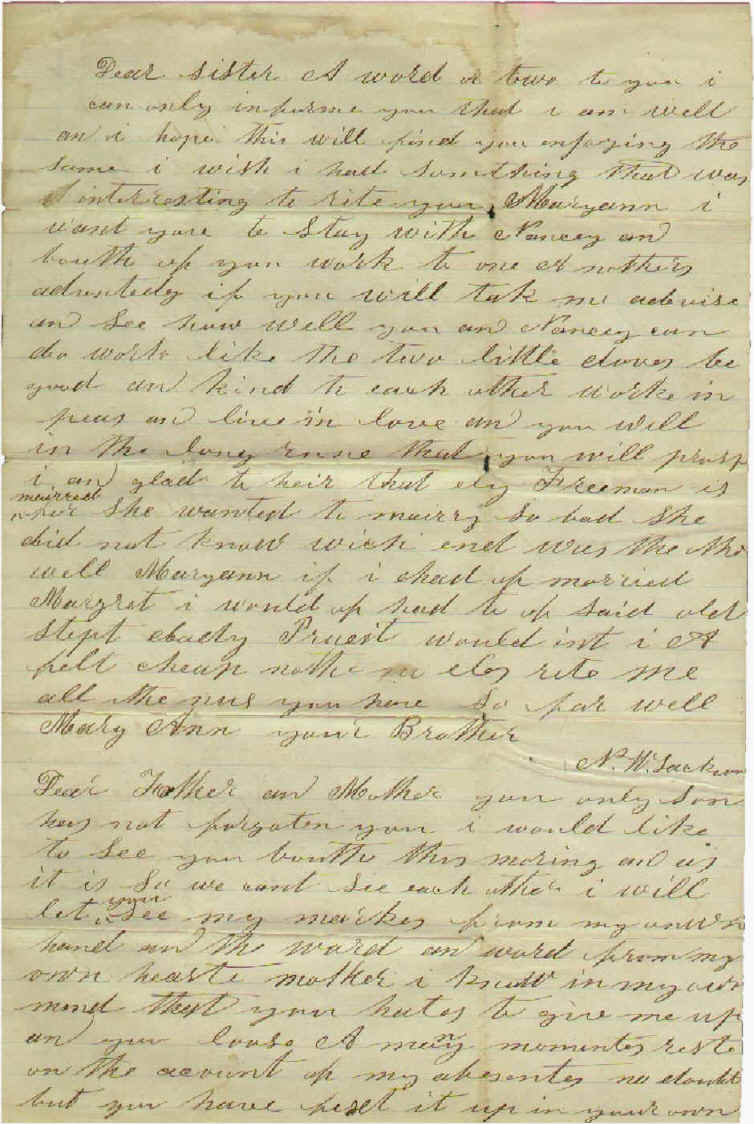 Dear sister A word or two to you i
can only informe you that i am well
an i hope this will find you enjoying the
same i wish i had something that was
interesting to rite you Maryann i
want you to stay with Nancey an
bouth of you work to one A nothers
if you will tak me advise
an See how well you an Nancey can
do work like the two little doves be
good an kind to each other worke in
peas an live in love an you will
in the long rune that you will prosp
i an glad to heir that Freeman is
mairred
She wanted to mairry So bad She
did not know wich end was the
well Maryann if i of morried
Margret i would of had to of said old
Stept Pruest would int i A
felt cheap nothe rite me
all the nus you have So far well
Mary Ann your Brother
N. W. Jackson
Dear Father an Mother you only Son
has not forgoten you i would like
to See you bouth this moring an as
it is So we cant See each other i will
let you See my markes from my onwn
hand an the word an word from my
own hearte mother i know in my own
mind that you hates to give me up
an you loose A meny momentes reste
on the account of my absentes no doubt
but you have it up in your own